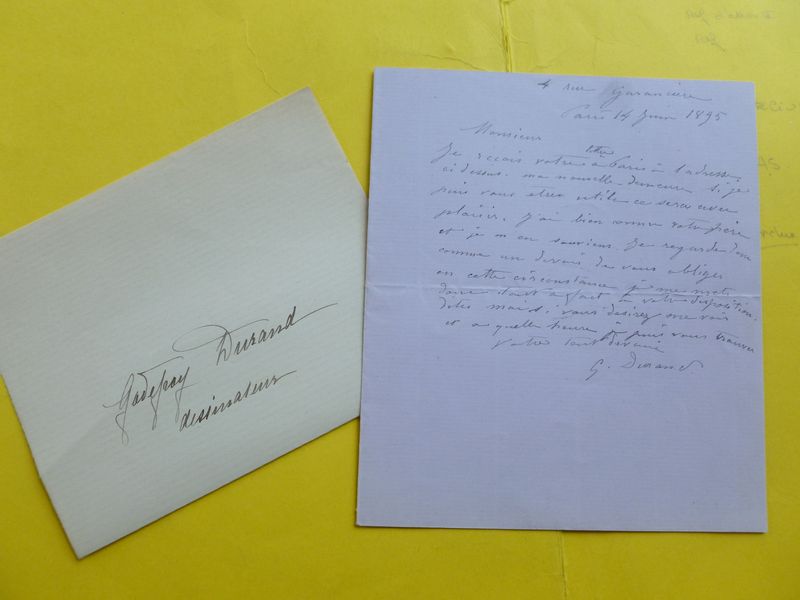 Godefroy Durand
dessinateur
4 rue Garancière
Paris 14 Juin 1895
Monsieur
lettre
Je reçois votre à Paris à l'adresse
ci dessus. ma nouvelle demeure si je
puis vous etre utile ce sera avec
plaisir. j'ai bien connu votre père
et je m'en souviens. Je regarde donc
comme un devoir de vous obliger
en cette circonstance je me mets
donc tout a fait à votre disposition.
dites moi si vous désirez me voir
et a quelle heure je puis vous trouver
votre tout dévoué
G. Durand